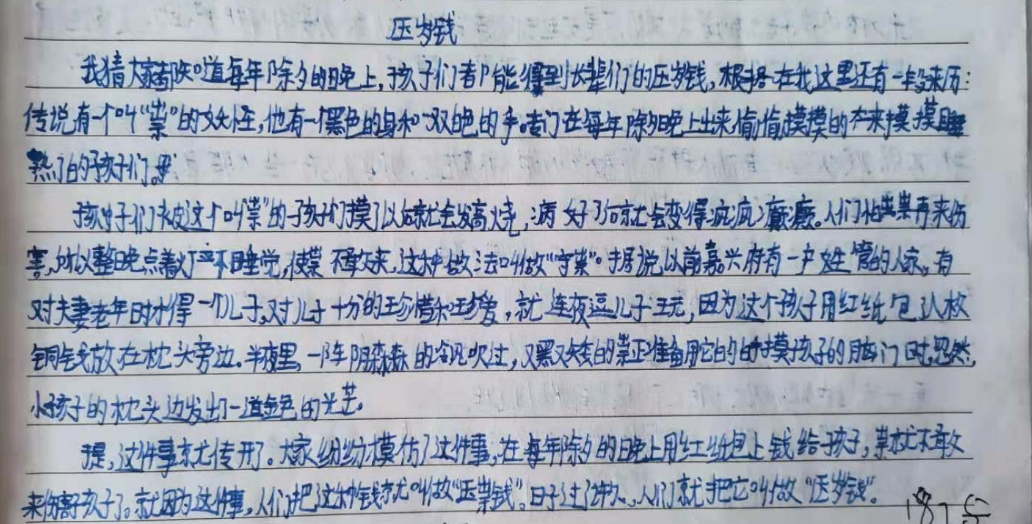 压岁钱
我猜大家都映道每年除夕的晚上,孩子们者能得到长辈们的压岁钱,根据在我这里还有一段来历:
传说有一个叫“祟”的妖怪,他有一个黑色的身和双白色的手。专门在每年除夕晚上出来偷偷摸摸的来摸摸睡
熟了的孩子们
孩子们被这个叫“祟”的孩子们摸了以后就会发高烧,病好了后就会变得疯疯癫癫。人们怕祟再来伤
害,所以整晚点着灯不睡觉,使祟不敢来,这种做法叫做“守祟”。据说以前嘉兴府有一户姓管的人家,有
对夫妻老年时才得一个儿子,对儿子十分的珍惜和珍爱,就连夜逗儿子玩,因为这个孩子用红纸包八枚
铜钱放在枕头旁边.半夜里,一阵阴森森的冷风吹过,又黑又矮的祟正准备用它白的摸孩子的脑门时,忽然,
小孩子的枕头边发出一道金色的光芒。
提,这件事就传开了。大家纷纷模仿了这件事,在每年除夕的日晚上用红纸包上钱给孩子,祟就不敢
来伤害孩子了。就因为这件事,人们把这种钱就叫做“压祟钱”。日子过,人们就把它叫做“压岁钱”。